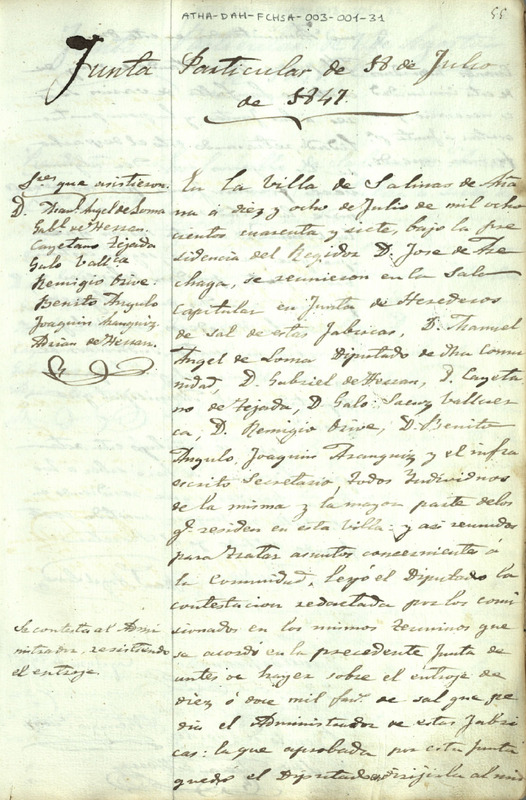 ATHA-DAH-FCHSA-003-001-31
55
Junta Particular de 18 de Julio
de 1847.
Sres. que asistieron.
D. Manl. Angel de Loma
Gabl. de Herran.
Cayetano Tejada
Galo Vallca
Remigio Orive.
Benito Angulo
Joaquin Aranguiz
Adrian de Herran.
En la Villa de Salinas de Aña
na á diez y ocho de Julio de mil ocho
cientos cuarenta y siete, bajo la pre
sidencia del Regidor D. Jose de Are
chaga, se reunieron en la Sala
Capitular en Junta de Herederos
de sal de estas Fabricas, D. Manuel
Angel de Loma Diputado de dha Comu
nidad, D. Gabriel de Herran, D. Cayeta
no de Tejada, D. Galo Saenz Valluer
ca, D. Remigio Orive, D. Benito
Angulo, Joaquin Aranguiz y el infra
escrito Secretario, todos Individuos
de la misma y la mayor parte delos
qe. residen en esta Villa y asi reunidos
para tratar asuntos concerniente á
la Comunidad, leyó el Diputado la
contestacion redactada por los comi
sionados en los mismos terminos que
se acordo en la precedente Junta de
antes de hayer sobre el entroje de
diez ó doce mil fas. de sal que pe
dia el Administrador de estas Fabri
cas: la que aprobada por esta Junta
quedó el Diputado en dirijirla al mis
Se contesta al Admi
nistrador, resistiendo
el entroje